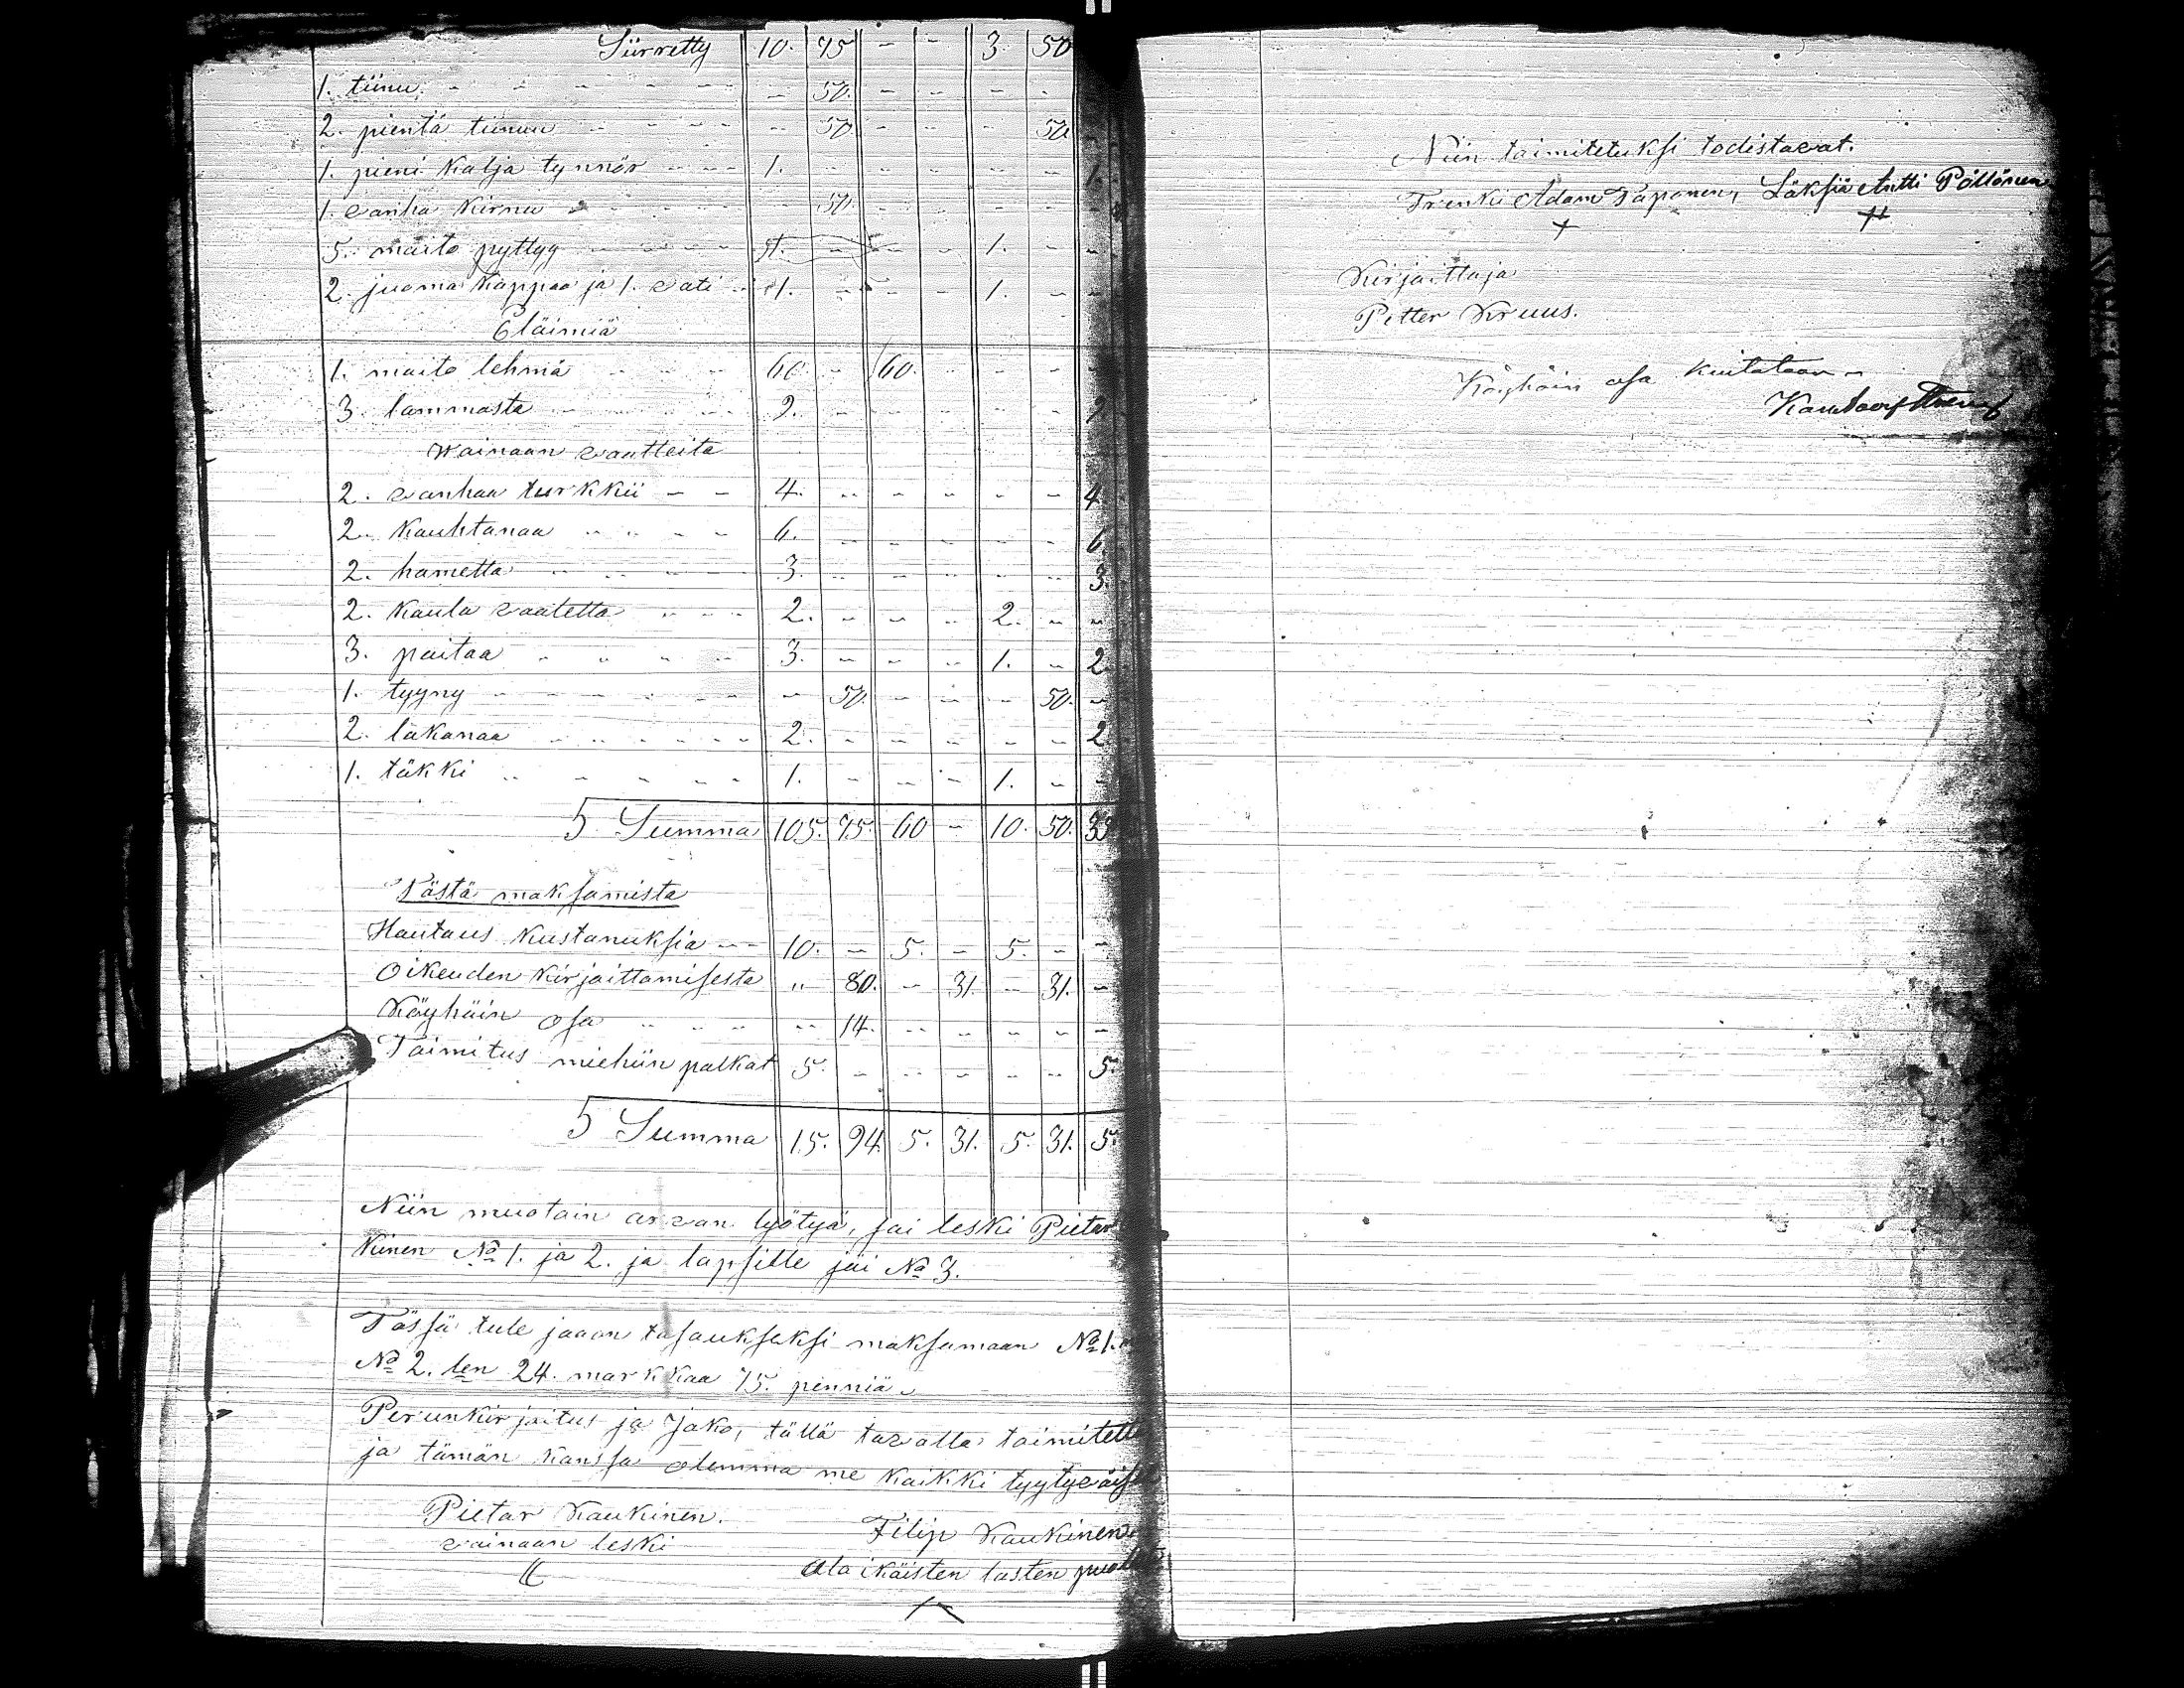 Siirretty 10. 75 - - 3. 50
1. tiinu - 50. - - - -
2. pientä tiinuu - 50 - - - 50
1. pieni kalja tynnör 1. - - - - - 1.
1. vanha kirnu - 50 - - - -
5. maito pyttyy 1. - - - 1. - -
2. juoma kappaa ja 1. vati 1. - - - 1. - -
Eläimiä
1. maito lehmä 60. - 60. - - - -
3. lammasta 9. - - - - -
Wainaan vaatteita
2. vanhaa turkkii 4. - - - - - 4.
2. kauhtanaa 6. - - - - - 6.
2. hametta 3. - - - - - 3.
2. kaula vaatetta 2. - - - 2. - -
3. paitaa 3. - - - 1. - 2.
1. tyyny - 50. - - - 50. -
2. lakanaa 2. - - - - - 2
1. täkki 1. - - - 1. -
Summa 105. 75. 60 - 10. 50. 35
Tästä maksamista
Hautaus kustanuksia 10. - 5. - 5. - -
Oikeuden kirjaittamisesta " 80. - 31. - 31. -
Käyhäin osa - 14. - - - - -
Toimitus miehiin palkat 5. - - - - - 5.
Summa 15. 94. 5. 31. 5. 31. 5.
Niin muotoin arvan lyötyä, sai leski Pietar
kinen No 1. ja 2. ja lapsille jäi No 3.
Tässä tule jaaon tasaukseksi maksamaan No 1.
No 2. len 24. markkaa 75. penniä
Perunkirjoitus ja Jako, tällä tavalla toimitettu
ja tämän kanssa olemma me kaikki tyytyväiset
Pietar Kaukinen.
vainaan leski
Filip Kaukinen
Ala ikäisten lasten puol
Niin toimitetuksi todistavat.
Trenki Adam Paponen, Läksiä Antti Pöllönen
Kirjaittaja
Petter Kruus.
Käyhäin osa kuitataan